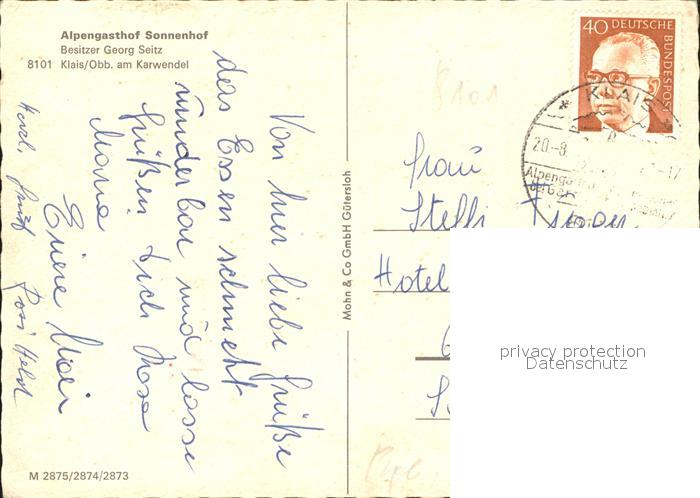 Alpengasthof Sonnenhof
Besitzer Georg Seitz
8101 Klais/Obb. am Karwendel
Von hier liebe Grüße
das Essen schmeckt
wunderbar und lasse
Grüßen Dich Rosa
Mama
Eure
Herzl. Gruß Rosi
M 2875/2874/2873
Mohn & Co GmbH Gütersloh
40 DEUTSCHE BUNDESPOST
* KLAIS *
20-8
Frau
Steffi
Hotel
8101
privacy protection
Datenschutz